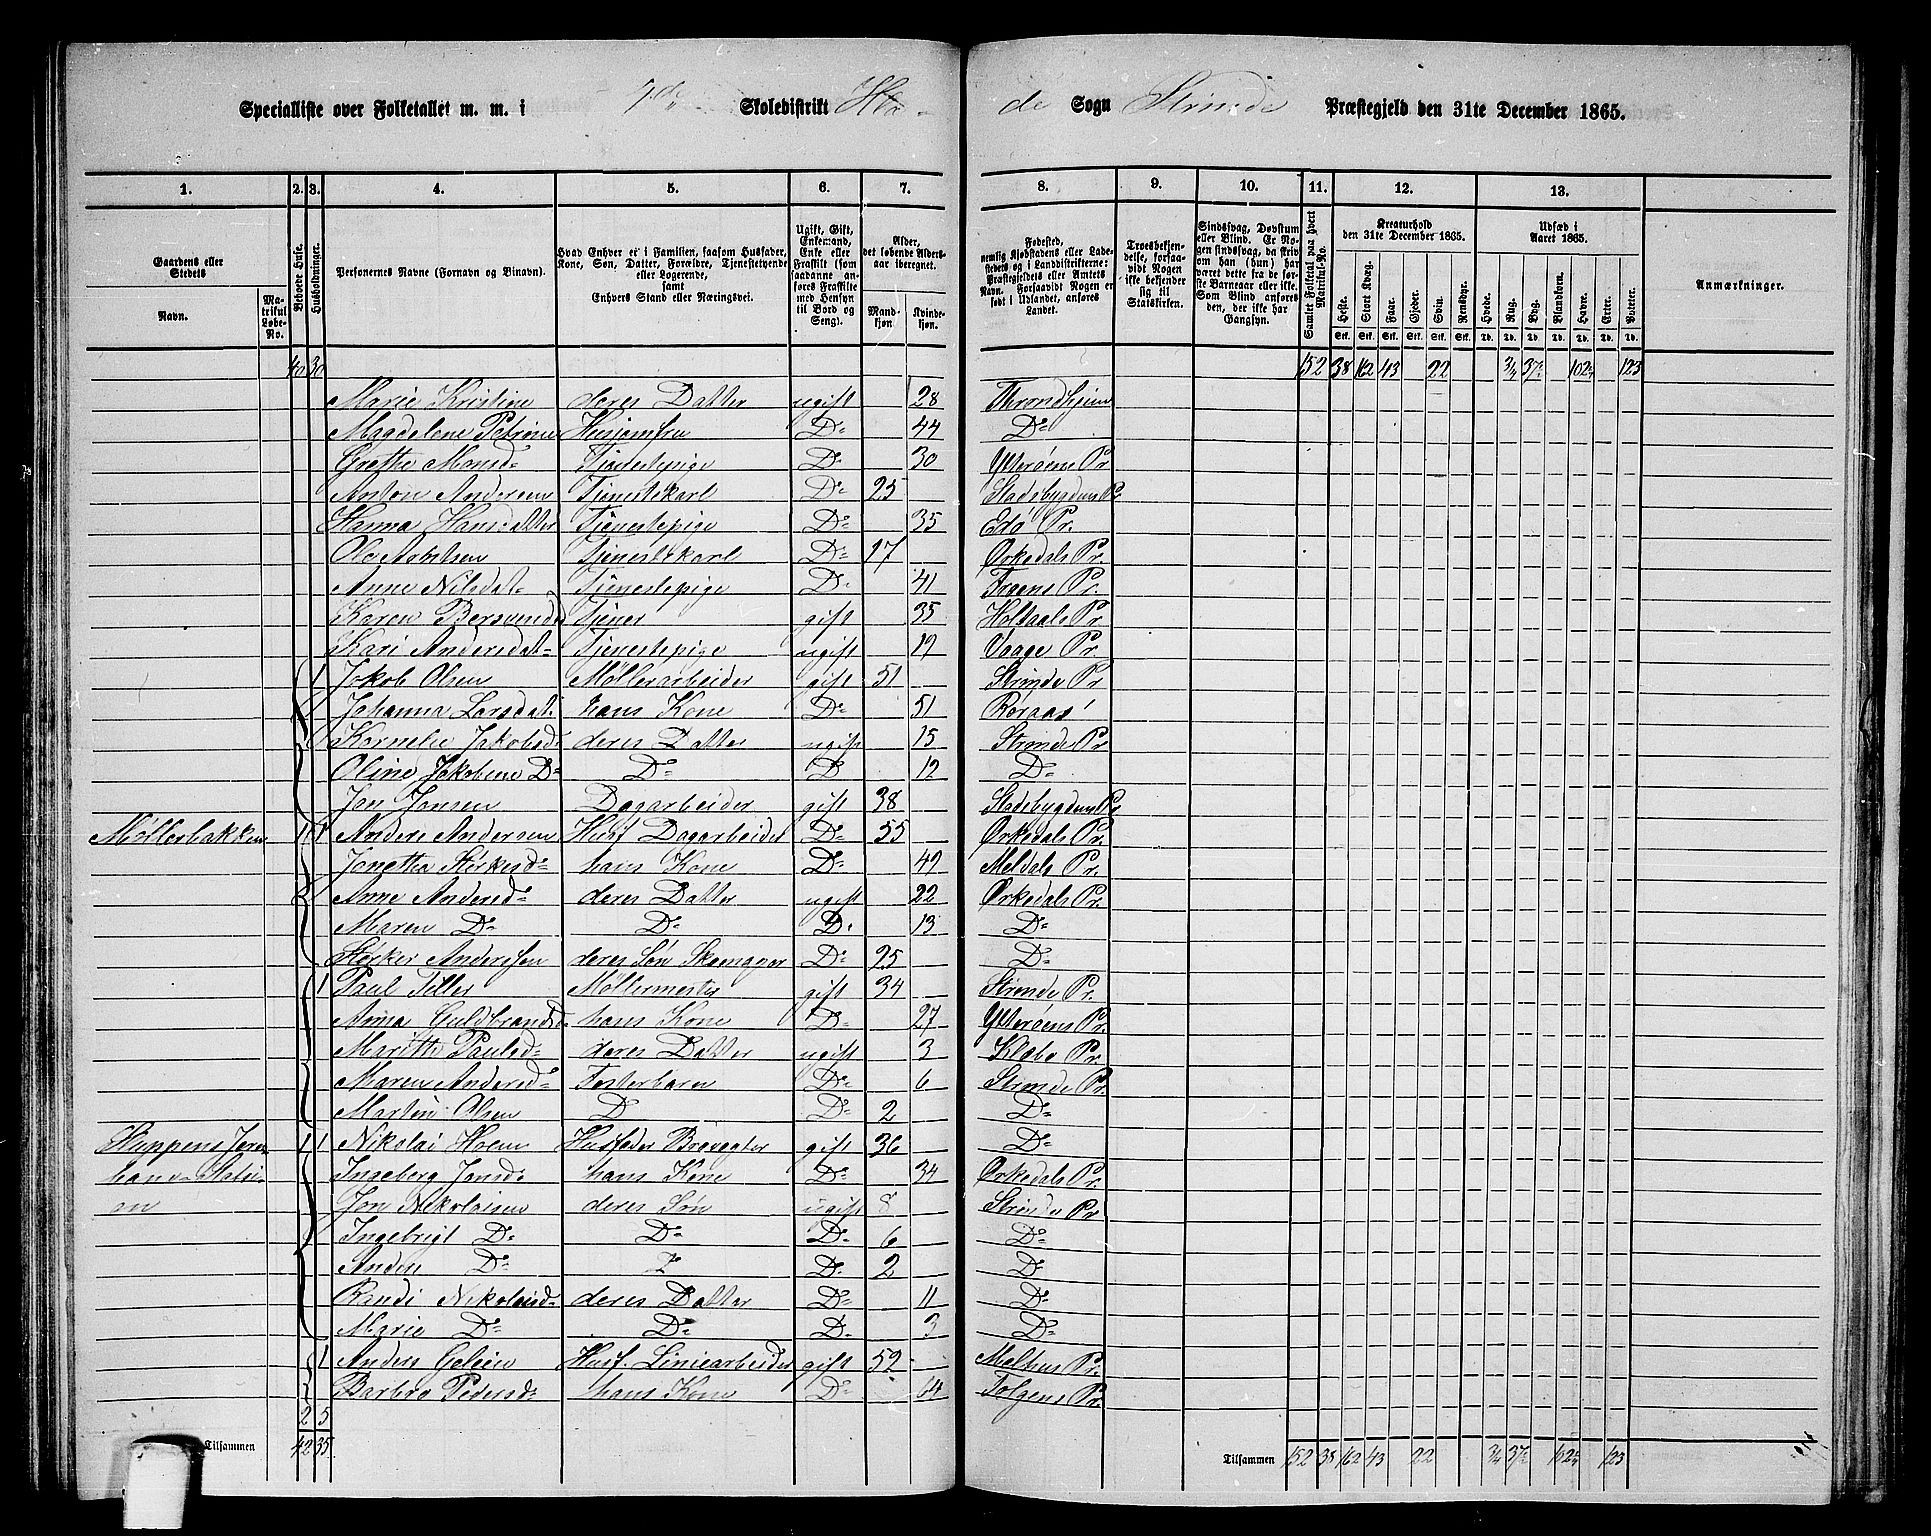 Specialliste over Folketallet m. m. i 4de Skoledistrikt Hla- de Sogn Strinde Præstegjeld den 31te December 1865.
1. 2. 3. 4. 5. 6. 7. 8. 9. 10. 11. 12. 13.
Gaardens eller Stedets
Navn.
Matrikul Løbe-No.
Beboede Huse.
Husholdninger.
Personernes Navne (Fornavn og Binavn).
Hvad Enhver er i Familien, saasom Husfader, Kone, Søn, Datter, Forældre, Tjenestetyende eller Logerende, samt Enhvers Stand eller Næringsvei.
Ugift, Gift, Enkemand, Enke eller Fraskilt (som saadanne anføres Fraskilte med Hensyn til Bord og Seng).
Alder, det løbende Aldersaar iberegnet.
Mandkjøn. Kvindekjøn.
Fødested, nemlig Kjøbstadens eller Ladestedets og i Landdistrikterne: Præstegjeldets eller Amtets Navn. Forsaavidt Nogen er født i Udlandet, anføres Landet.
Troesbekjendelse, forsaavidt Nogen ikke bekjender sig til Statskirken.
Sindssvag, Døvstum eller Blind. Er Nogen sindssvag, da skrives om han (hun) har været dette fra de første Barneaar eller ikke. Som Blind anføres den, der ikke har Gangsyn.
Samlet Folketal paa hvert Matrikul-No.
Kreaturhold den 31te December 1865.
Heste. Stort Kvæg. Faar. Gjeder. Svin. Rensdyr.
Udsæd i Aaret 1865.
Hvede. Rug. Byg. Blandkorn. Havre. Erter. Poteter.
Anmærkninger.
40 30 152 38 162 43 22 3/4 37 102 123
Marie Kristine deres Datter ugift 28 Throndhjem
Magdelene Petrine Husjomfru Do 44 Do
Grethe Monsd Tjenestepige Do 30 Ytterøens Pr
Anton Andersen Tjenestekarl Do 25 Stadsbygdens Pr
Hanna Hansdatter Tjenestepige Do 35 Edø Pr.
Ole Tjenestekarl Do 27 Orkedals Pr.
Anne Nilsdat Tjenestepige Do 41 Pr.
Karen Bersvendsd Tjener gift 35 Holtaals Pr
Kari Andersdat Tjenestepige ugift 19 Vaage Pr.
1 Jakob Olsen Møllerarbeider gift 51 Strinde Pr
Johanna Larsdat hans Kone Do 51 Røraas
Kornelie Jakobsd deres Datter ugift 15 Strinde Pr
Oline Jakobine Do Do D 12 Do
Jon Jonsen Dagarbeider gift 38 Stadsbygdens Pr
Møllerbakken 1 1 Anders Andersen Husf Dagarbeider Do 55 Orkedals Pr.
Jonetta Størkersd hans Kone Do 49 Meldals Pr.
Anne Andersd deres Datter ugift 22 Orkedals Pr.
Maren Do Do D. 13 Do
Størker Anderssen deres Søn Skomager Do 25 Do
1 Paul Tiller Møllermester gift 34 Strinde Pr.
Anna Guldbrandsd hans Kone Do 27 Ytterøens Pr.
Marithe Paulsd deres Datter ugift 3 Klæbo Pr.
Maren Andersd Fosterbarn Do 6 Strinde Pr.
Martin Olsen D Do 2 Do
Sluppens Jern- 1 1 Nikolai Holm Husfader Brovogter gift 36 Do
bane Statsi- Ingeberg Jonsd hans Kone Do 34 Orkedals Pr.
on Jon Nikolaisen deres Søn ugift 8 Strinde Pr
Ingebrigt Do Do Do 6 Do
Anders Do D D. 2 D
Randi Nikolaisd deres Datter Do 11 Do
Marie Do Do D. 3 Do
1 Anders Husf. Liniearbeider gift 52 Melhus Pr.
Barbro Pedersd hans Kone Do 64 Tolgens Pr.
2 5
Tilsammen 42 35 Tilsammen 152 38 162 43 22 3/4 37 102 123